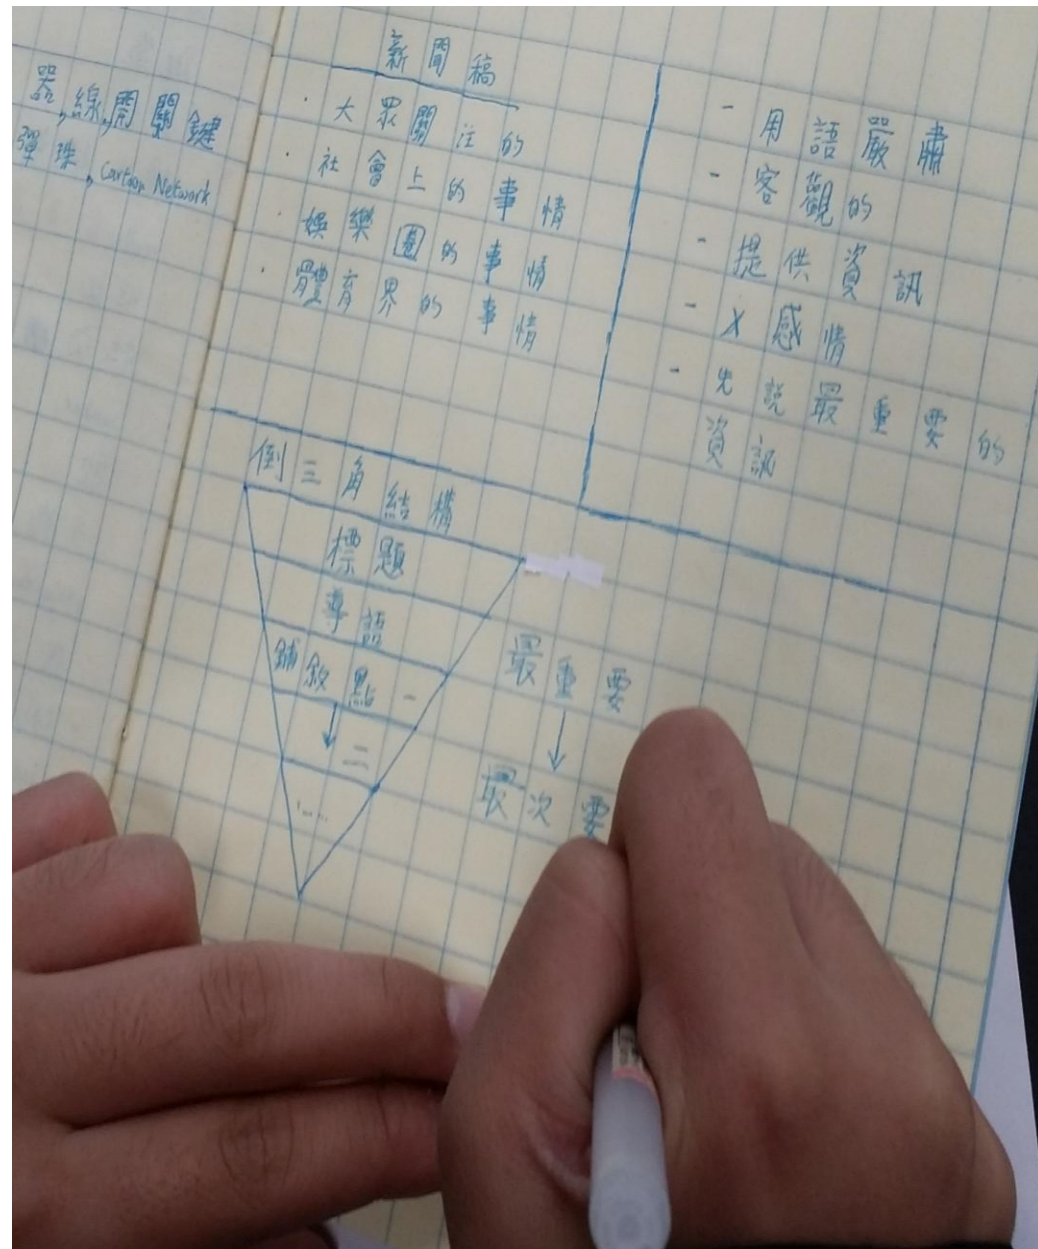 器,線,開關鍵
彈珠,Cartoon Network
新聞稿
· 大眾關注的
· 社會上的事情
· 娛樂圈的事情
· 體育界的事情
- 用語嚴肅
- 客觀的
- 提供資訊
- X感情
- 先說最重要的
資訊
倒三角結構
標題
導語
鋪敘點一
↓二
......
最重要
↓
最次要